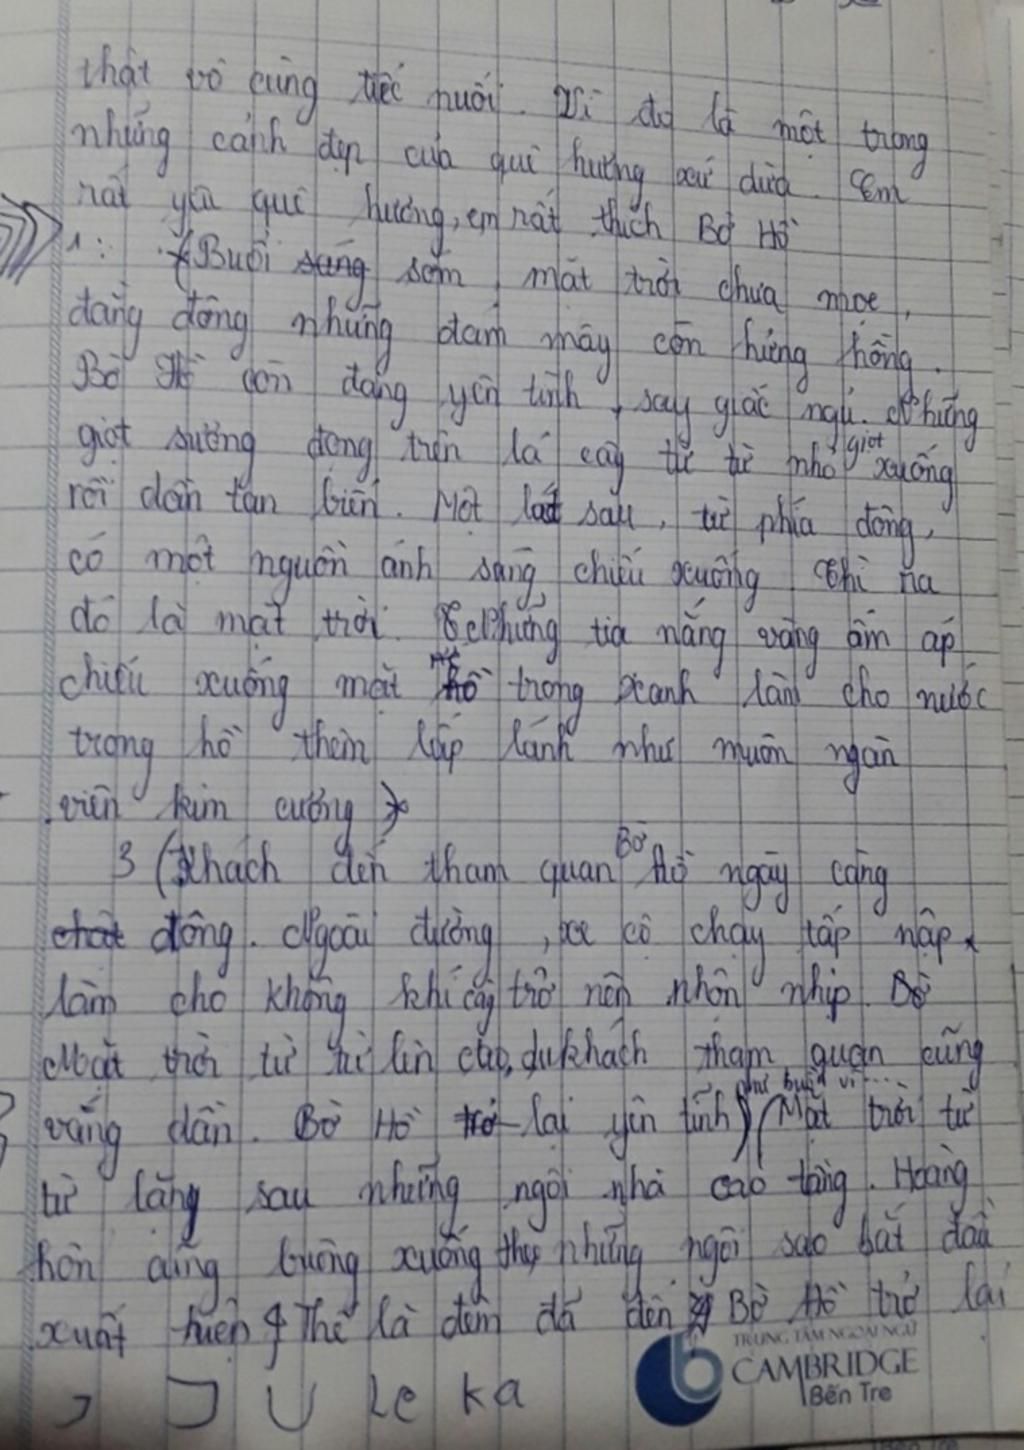 thật vô cùng tiếc nuối. Vì đó là một trong
những cảnh đẹp của quê hương xứ dừa. Em
rất yêu quê hương, em rất thích Bờ Hồ
1: (Buổi sáng sớm, mặt trời chưa mọc,
đằng đông những đám mây còn hửng hồng.
Bờ Hồ còn đang yên tĩnh, say giấc ngủ. Những
giọt sương đọng trên lá cây từ từ nhỏ giọt xuống
rồi dần tan biến. Một lát sau, từ phía đông,
có một nguồn ánh sáng chiếu xuống thì ra
đó là mặt trời. Những tia nắng vàng ấm áp
chiếu xuống mặt hồ trong xanh làm cho nước
trong hồ thêm lấp lánh như muôn ngàn
viên kim cương)
3 (Khách đến tham quan Bờ Hồ ngày càng
đông. Ngoài đường, xe cộ chạy tấp nập
làm cho không khí cây trở nên nhộn nhịp.
Mặt trời từ từ lên cao, du khách tham quan cũng
như buổi vì...
vắng dần. Bờ Hồ trở lại yên tĩnh) (Mặt trời từ
từ lặng sau những ngôi nhà cao tầng. Hoàng
hôn cũng buông xuống thay những ngôi sao bắt đầu
xuất hiện. Thế là đêm đã đến Bờ Hồ trở lại
Le ka
TRUNG TÂM NGOẠI NGỮ
CAMBRIDGE
Bến Tre